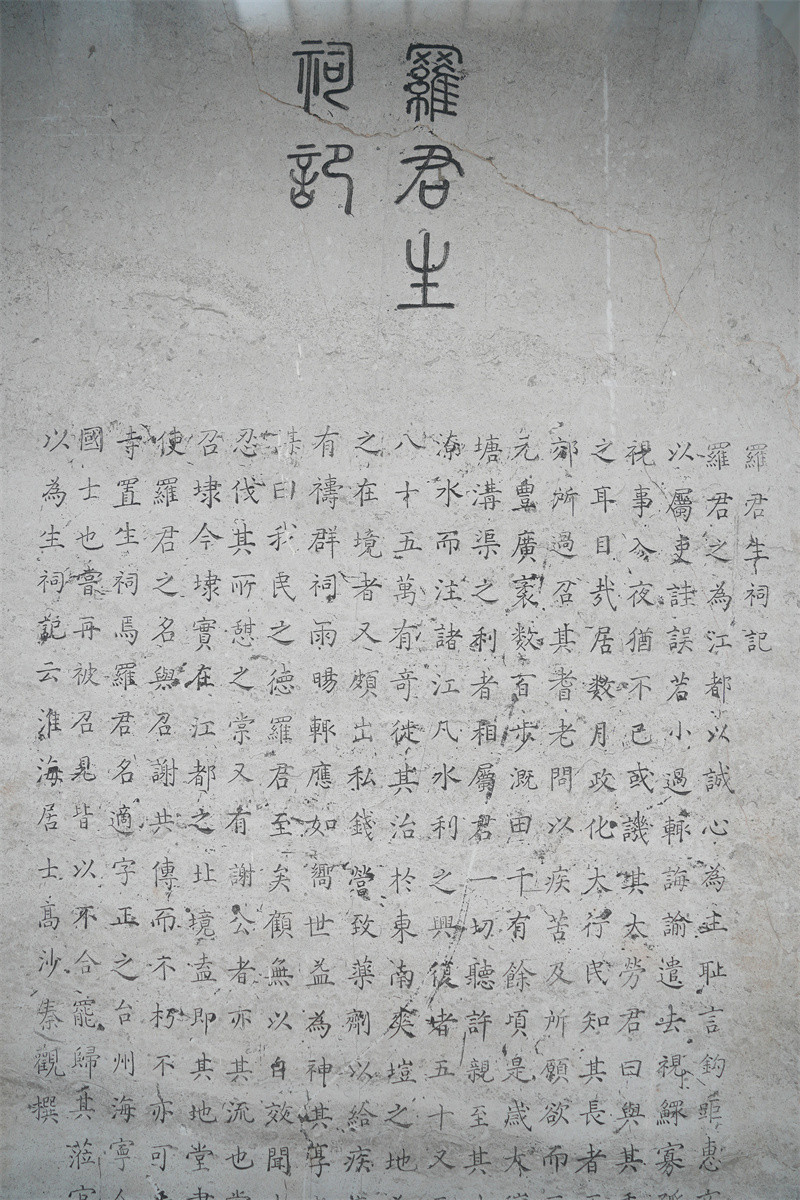 羅君生
祠記
羅君生祠記
羅君之為江都以誠心為主恥言鉤距惠
以屬吏詿誤若小過輒誨諭遣去視鰥寡
視事入夜猶不已或譏其太勞君曰與其
之耳目哉居數月政化大行民知其長者
郊所過召其耆老問以疾苦及所願欲而
元豐廣袤數百步溉田千有餘頃是歲大
塘溝渠之利者相屬君一切聽許親至其
潦水而注諸江凡水利之興復者五十又
八十五萬有奇徙其治於東南爽塏之地
之在境者又頗出私錢營致藥劑以給疾
有禱群祠雨暘輒應如嚮世益為神其尊
謀曰我民之德羅君至矣顧無以自效聞
忍伐其所憩之棠又有謝公者亦其流也
召埭今埭實在江都之北境盍即其地堂
使羅君之名與召謝共傳而不朽不亦可
寺置生祠焉羅君名適字正之台州海寧
國士也嘗再被召見皆以不合罷歸其蒞
以為生祠記云淮海居士高沙秦觀撰